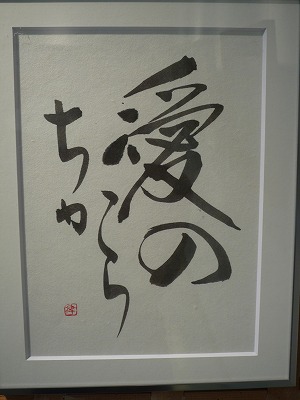 愛の
ちから